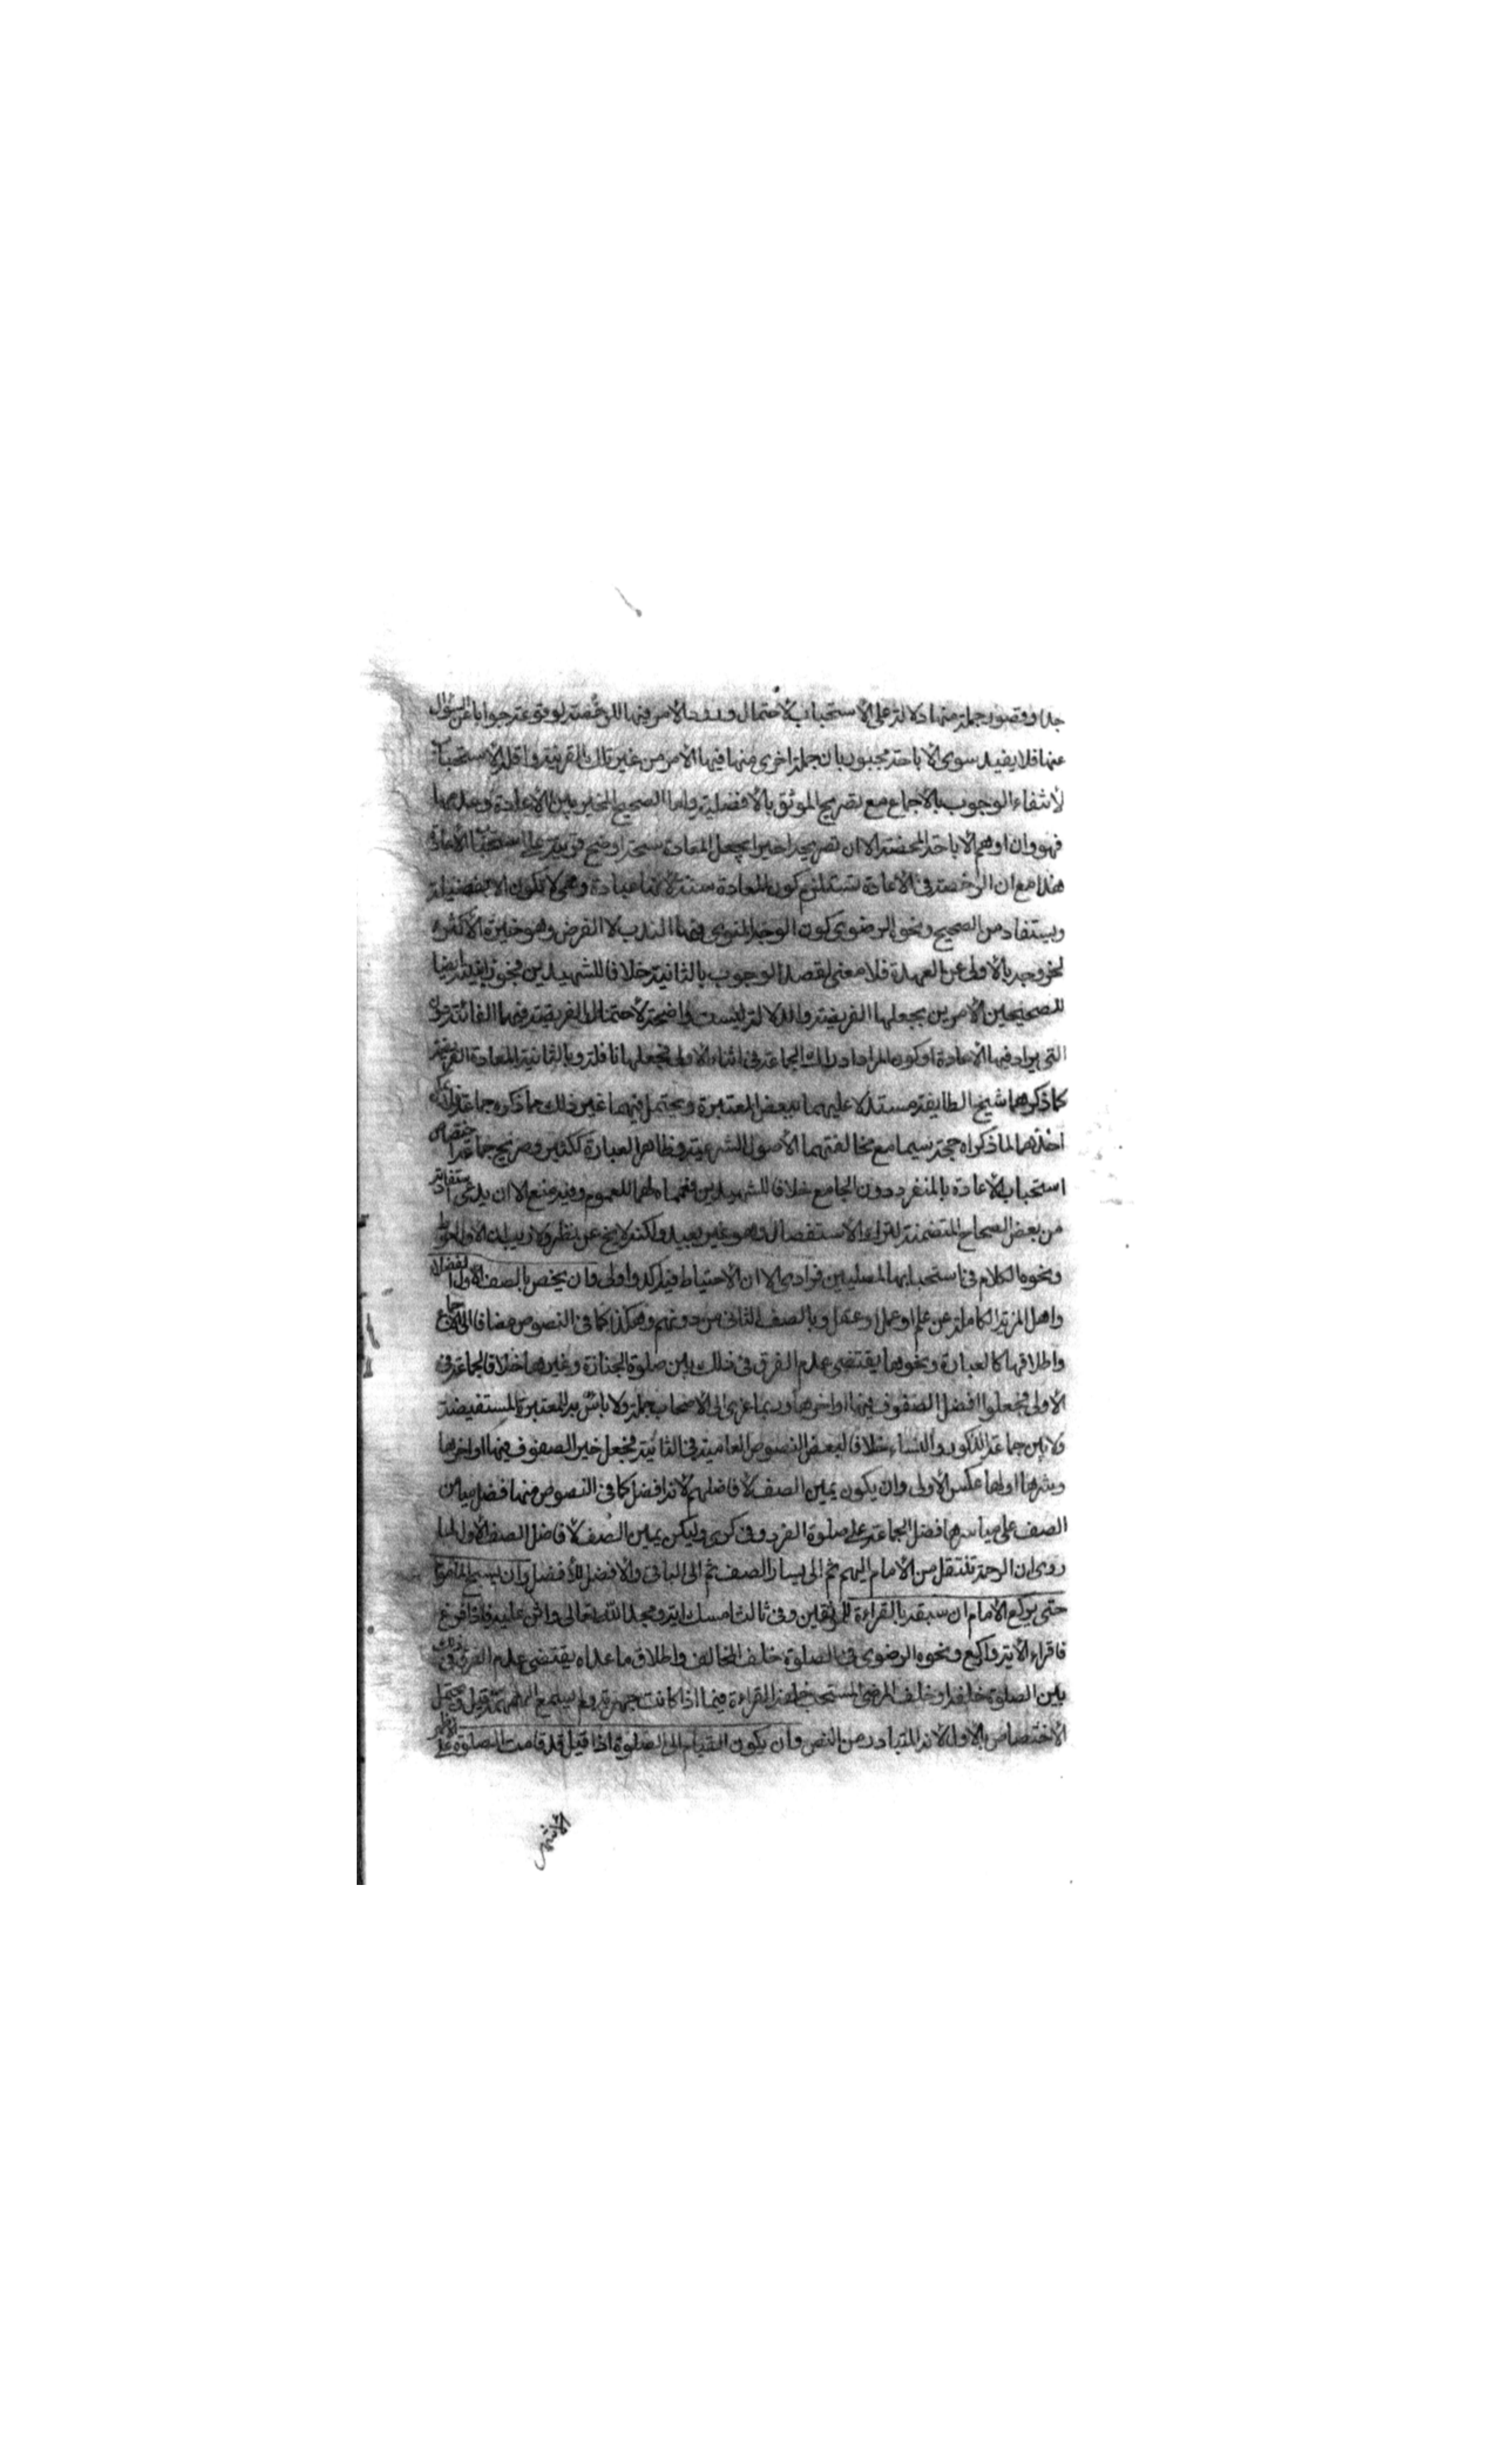 جدا وقصور جملة منها دلالة على الاستحباب لاحتمال ورود الامر فيها للرخصة لوقوعه جوابا عن السؤال
عنها فلا يفيد سوى الاباحة مجبور بان جملة اخرى منها فيها الامر من غير تلك القرينة واقله الاستحباب
لانتفاء الوجوب بالاجماع مع تصريح الموثق بالافضلية واما الصحيح المخير بين الاعادة وعدمها
فهو وان اوهم الاباحة المحضة الا ان تصريحه اخيرا بجعل المعادة سبحة اوضح قرينة على استحباب الاعادة
هذا مع ان الرخصة في الاعادة تستلزم كون المعادة سنة لانها عبادة وهي لا تكون الا بفضيلة
ويستفاد من الصحيح ونحو الرضوي كون الوجه المنوي فيها الندب لا الفرض وهو خيرة الاكثر
لخروجه بالاولى عن العهدة فلا معنى لقصد الوجوب بالثانية خلافا للشهيدين فجوزا نيته ايضا
للصحيحين الامرين بجعلها الفريضة والدلالة ليست واضحة لاحتمال الفريضة فيهما الفائتة دون
التي يراد فيها الاعادة او كون المراد ادراك الجماعة في اثناء الاولى فيجعلها نافلة وبالثانية المعادة الفريضة
كما ذكرهما شيخ الطايفة مستدلا عليهما ببعض المعتبرة ويحتمل فيهما غير ذلك مما ذكره جماعة فلا يمكن
اخذهما لما ذكراه حجة سيما مع مخالفتهما الاصول الشرعية وظاهر العبارة ككثير وصريح جماعة اختصاص
استحباب الاعادة بالمنفرد دون الجامع خلافا للشهيدين فعمماه لهما للعموم وفيه منع الا ان يدعى استفادته
من بعض الصحاح المتضمنة لترك الاستفصال وهو غير بعيد ولكنه لا يخ عن نظر ولا ريب ان الاول احوط
ونحوه الكلام في استحبابها للمصليين فرادى الا ان الاحتياط فيه آكد واولى وان يخص بالصف الاول الفضلاء
واهل المزية الكاملة من علم او عمل او عقل وبالصف الثاني من دونهم وهكذا كما في النصوص مضافا الى الاجماع
واطلاقها كالعبارة ونحوها يقتضي عدم الفرق في ذلك بين صلوة الجنازة وغيرها خلافا لجماعة في
الاولى فجعلوا افضل الصفوف فيها اواخرها وربما عزي الى الاصحاب جملة ولا باس به للمعتبرة المستفيضة
ولا بين جماعة الذكور والنساء خلافا لبعض النصوص العامية في الثانية فجعل خير الصفوف فيها اواخرها
وشرها اولها عكس الاولى وان يكون يمين الصف لافاضلهم لانه افضل كما في النصوص منها فضل ميامن
الصف على مياسرها فضل الجماعة على صلوة الفرد وفي كرى وليكن يمين الصف لافاضل الصف الاول لما
روى ان الرحمة تنتقل من الامام اليهم ثم الى يسار الصف ثم الى الباقي والافضل للافضل وان يسبح الماموم
حتى يركع الامام ان سبقه بالقراءة للموثقين وفي ثالث امسك اية ومجد الله تعالى واثن عليه فاذا فرغ
فاقراء الاية واركع ونحوه الرضوي في الصلوة خلف المخالف واطلاق ما عداه يقتضي عدم الفرق في ذلك
بين الصلوة خلفه او خلف المرضي المستحب خلفه القراءة فيما اذا كانت جهرية ولم يسمع الهمهمة قيل ويحتمل
الاختصاص بالاول لانه المتبادر من النص وان يكون القيام الى الصلوة اذا قيل قد قامت الصلوة على الاظهر
الاشهر